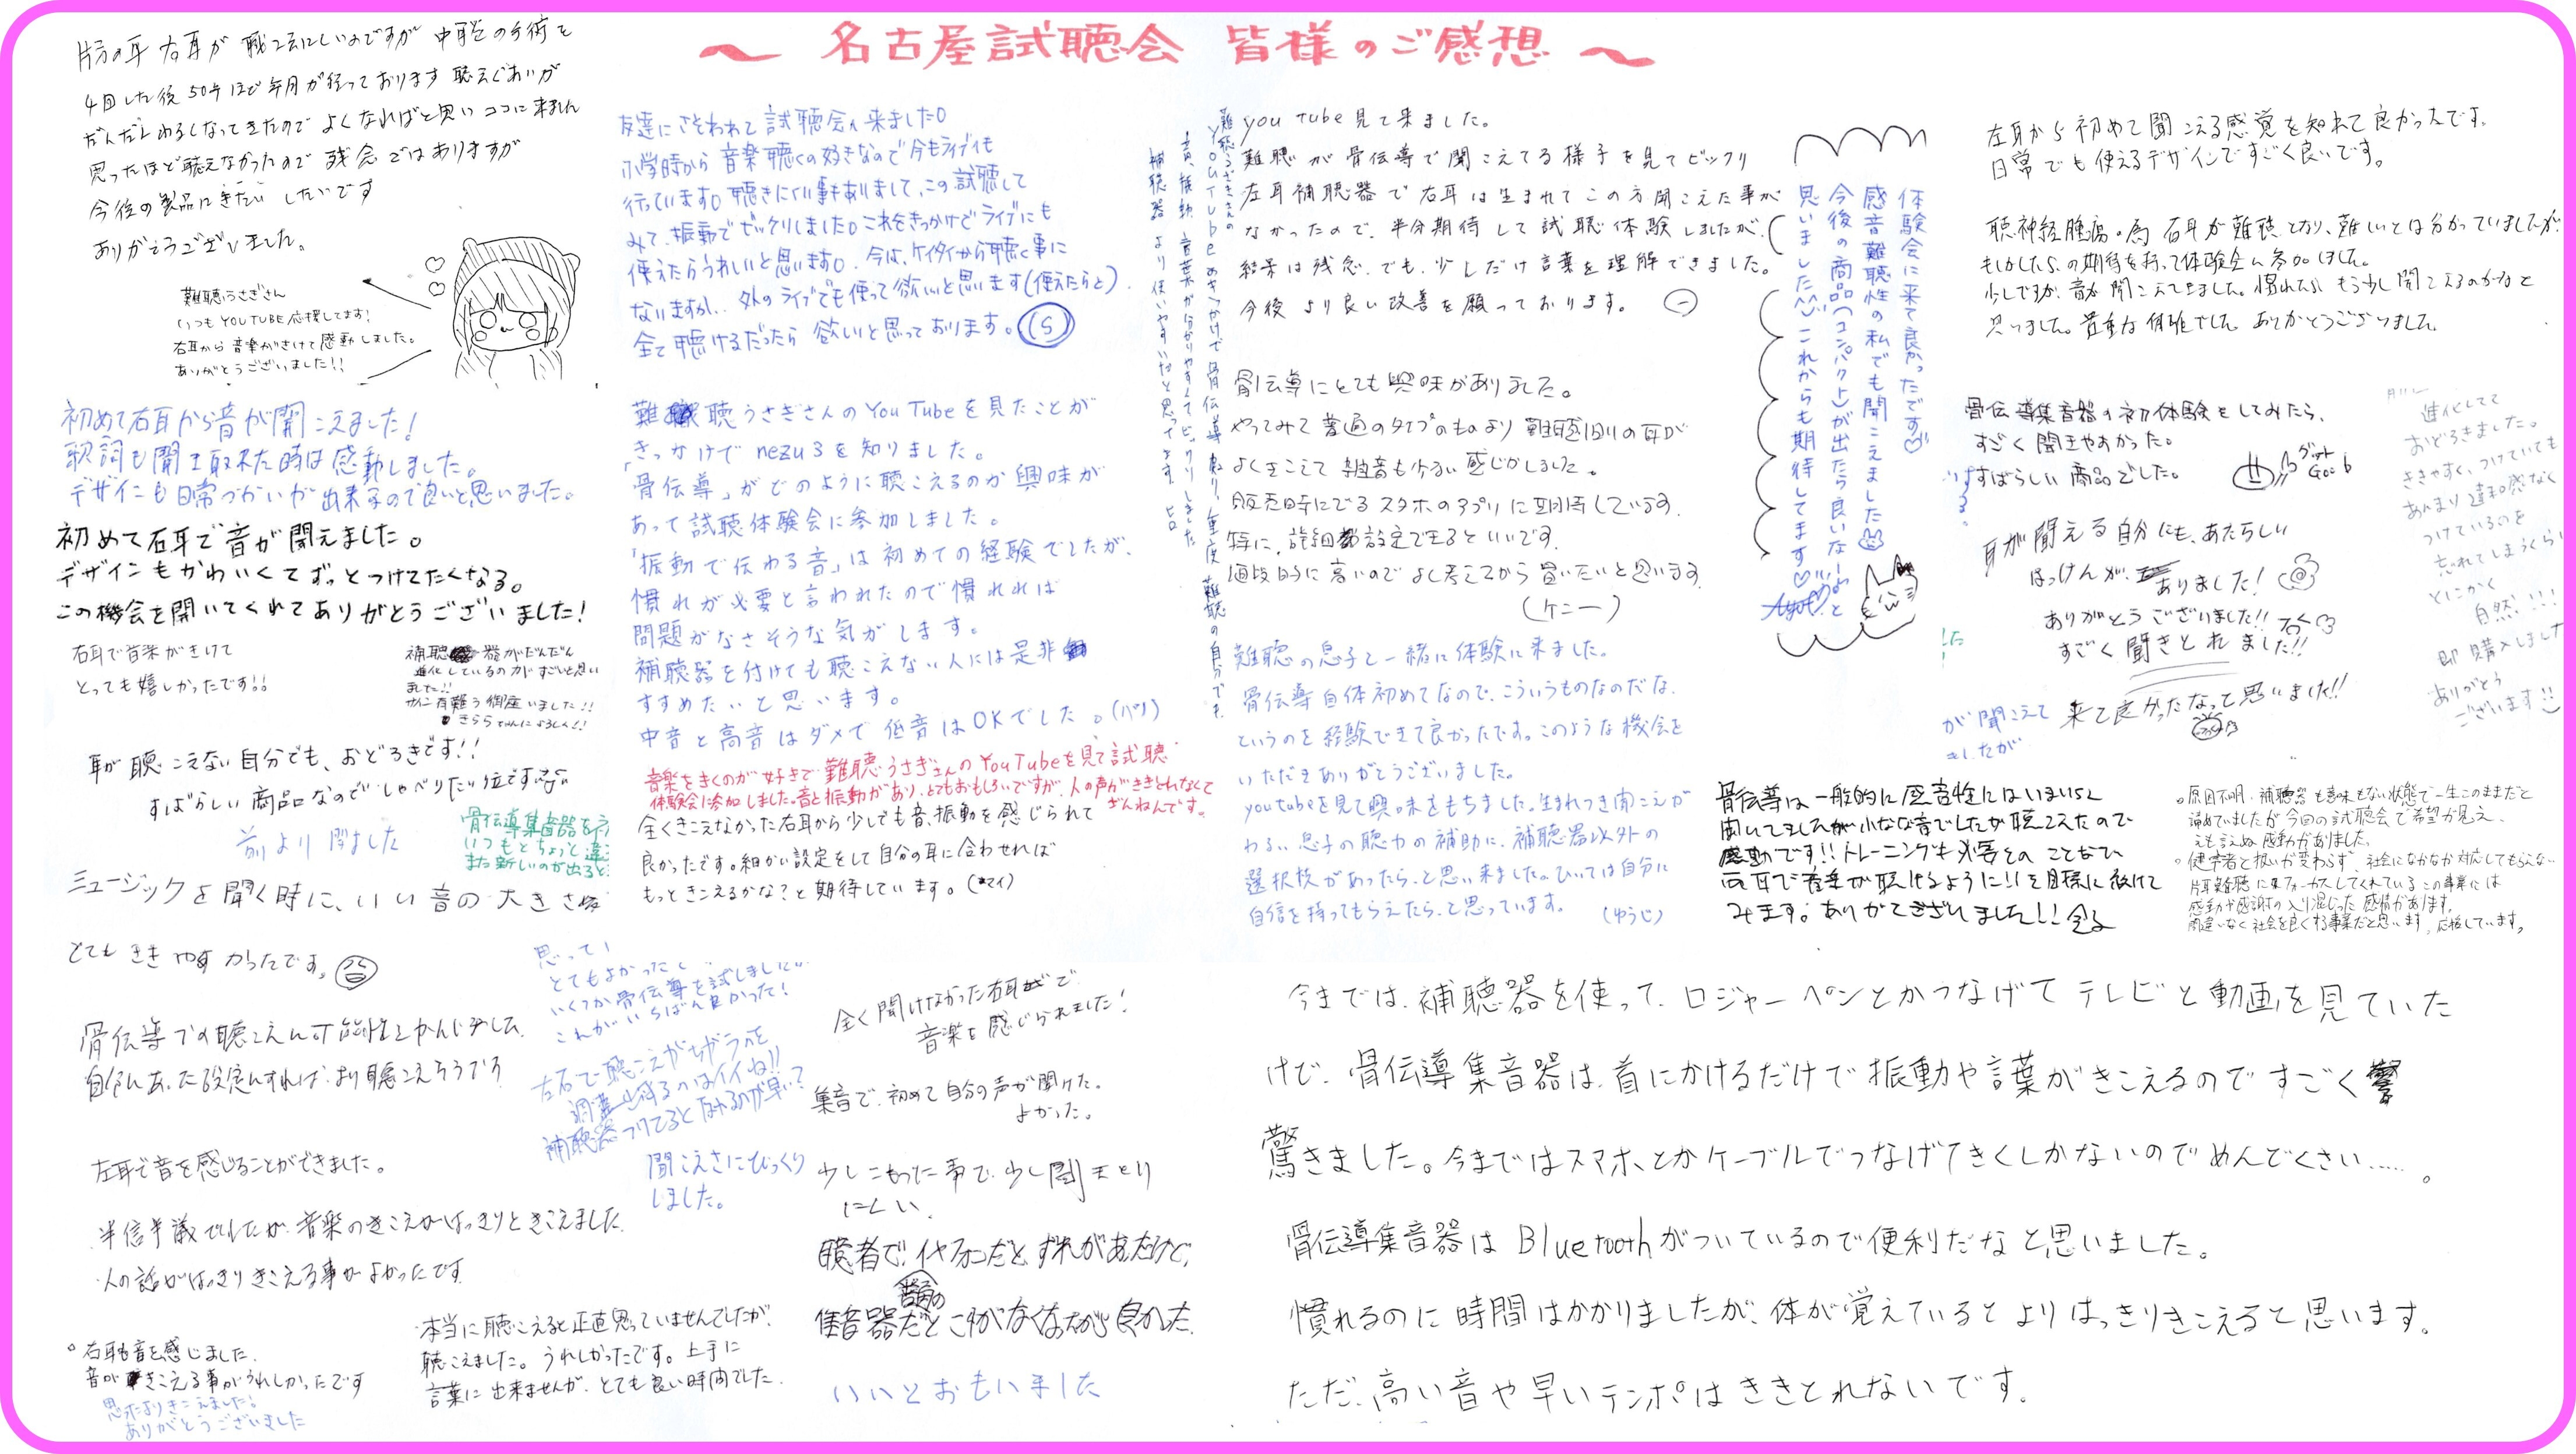 ～ 名古屋試聴会 皆様のご感想 ～
片方の耳 右耳が 聴こえにくいのですが 中耳炎の手術を
4回した後 50年ほど年月が経っております 聴えぐあいが
だんだんわるくなってきたので よくなればと思い ココに来ました
思ったほど聴えなかったので 残念ではありますが
今後の製品にきたい したいです
ありがとうございました。
難聴うさぎさん
いつも YOUTUBE 応援してます!
右耳から 音楽がきけて 感動しました。
ありがとうございました!!
初めて右耳から音が聞こえました!
歌詞も聞き取れた時は感動しました。
デザインも日常づかいが出来るので良いと思いました。
初めて右耳で音が聞えました。
デザインもかわいくてずっとつけてたくなる。
この機会を開いてくれてありがとうございました!
右耳で音楽がきけて
とっても嬉しかったです!!
補聴器がだんだん
進化しているのがすごいと思い
ました!!
有難う御座いました!!
きららちゃんによろしく!!
耳が聴こえない自分でも、おどろきです!!
すばらしい商品なので しゃべりたい位です
前より 聞ました
骨伝導集音器を
いつもとちょっと違
また新しいのが出ると
ミュージックを聞く時に、いい音の大きさ
とても ききやすかったです。
骨伝導での聴こえに可能性をかんじました
自分にあった設定にすれば より聴こえそうです
左耳で音を感じることができました。
半信半議でしたが、音楽のきこえがはっきりときこえました
人の話がはっきりきこえる事がよかったです
右耳も音を感じました
音がきこえる事がうれしかったです
思ったよりきこえました。
ありがとうございました
本当に聴こえると正直思っていませんでしたが、
聴こえました。うれしかったです。上手に
言葉に出来ませんが、とても良い時間でした
友達にさとわれて試聴会へ来ました。
小学時から音楽聴くの好きなので今もライブも
行っています。聴きにくい事もありまして、この試聴して
みて、振動でビックリしました。これをきっかけでライブにも
使えたらうれしいと思います。今は、ケイタイから聴く事に
ないますが、外のライブでも使って欲しいと思います(使えたらと)
全て聴けるだったら 欲しいと思っております。(S)
難聴うさぎさんのYouTubeを見たことが
きっかけで nezu3を知りました。
「骨伝導」がどのように聴こえるのか興味が
あって試聴体験会に参加しました。
「振動で伝わる音」は初めての経験でしたが、
慣れが必要と言われたので慣れれば
問題がなさそうな気がします。
補聴器を付けても聴こえない人には是非
すすめたいと思います。
中音と高音はダメで低音はOKでした。(パリ)
音楽をきくのが好きで難聴うさぎさんのYouTubeを見て試聴
体験会に参加しました。音と振動があり、とてもおもしろいですが、人の声がききとれなくて
ざんねんです。
全くきこえなかった右耳から少しでも音、振動を感じられて
良かったです。細かい設定をして自分の耳に合わせれば
もっときこえるかな?と期待しています。(マイ)
思ってい
とてもよかった
いくつか骨伝導を試しました
これがいちばん良かった!
左右で聴こえがちがうのを
調整出来るのはイイね!!
補聴器つけてるとなれるのが早い?
聞こえさにびっくり
しました。
全く聞けなかった右耳で
音楽を感じられました!
集音で、初めて自分の声が聞けた。
よかった。
少しこもった事で、少し聞きとり
にくい。
聴者で、イヤフォンだと、ずれがあるけど、
集音器だと これがなくなったから 良かった
いいとおもいました
難聴うさぎさんの
YOUTUBEのきっかけで 骨伝導 重度難聴の自分でも、
音、振動、言葉が分かりやすくてビックリしました
補聴器より使いやすいなと思ってます。ヒロ
you tube見て来ました。
難聴が骨伝導で聞こえてる様子を見てビックリ
左耳補聴器で右耳は生まれてこの方聞こえた事が
なかったので、半分期待して試聴体験しましたが、
結果は残念。でも、少しだけ言葉を理解できました。
今後 より良い改善を願っております。
骨伝導にとても興味がありました。
やってみて普通のタイプのものより難聴側の耳が
よくきこえて雑音も少ない感じがしました。
販売時にでるスマホのアプリに期待しています。
特に、詳細設定できるといいです。
値段的に高いのでよく考えてから買いたいと思います
(ケニー)
難聴の息子と一緒に体験に来ました。
骨伝導自体初めてなので、こういうものなのだな、
というのを経験できて良かったです。このような機会を
いただきありがとうございました。
youtubeを見て興味をもちました。生まれつき聞こえが
わるい息子の聴力の補助に、補聴器以外の
選択枝があったら、と思い来ました。ひいては自分に
自信を持ってもらえたら、と思っています。(ゆうじ)
体験会に来て良かったです♡
感音難聴性の私でも聞こえました
今後の商品(コンパクト)が出たら良いなーと
思いました^^ これからも期待してます♡
左耳から初めて聞こえる感覚を知れて良かったです。
日常でも使えるデザインですごく良いです。
聴神経腫瘍の為 右耳が難聴となり、難しいとは分かっていましたが
もしかしたら、の期待を持って体験会へ参加しました。
少しですが、音が聞こえてきました。慣れたら もう少し聞こえるのかなと
思いました。貴重な体験でした。ありがとうございました。
骨伝導集音器の初体験をしてみたら、
すごく聞きやすかった。
すばらしい商品でした。
グット
Good
耳が聞える自分にも、あたらしい
はっけんが、ありました!
ありがとうございました!!
すごく聞きとれました!!
来て良かったなって思いました!!
が聞こえて
きしたが
した
進化してて
おどろきました。
ききやすく、つけていても
あんまり違和感なく
つけているのを
忘れてしまうくらい
とにかく
自然!!!
即購入しました
ありがとう
ございます
骨伝導は一般的に感音性にはいまいちと
聞いてましたが小さな音でしたが聴こえたので
感動です!! トレーニングも必要とのことなので
両耳で音楽が聴けるように!!を目標に続けて
みます。ありがとうございました!!
。原因不明・補聴器も意味もない状態で一生このままだと
諦めていましたが今回の試聴会で希望が見え、
えも言えぬ感動がありました。
。健常者と扱いが変わらず、社会になかなか対応してもらえない
片耳難聴にフォーカスしてくれているこの事業には
感動や感謝の入り混じった感情があります。
間違いなく社会を良くする事業だと思います、応援しています。
今までは、補聴器を使って、ロジャーペンとかつなげてテレビと動画を見ていた
けど、骨伝導集音器は、首にかけるだけで振動や言葉がきこえるのですごく
驚きました。今まではスマホとかケーブルでつなげてきくしかないのでめんどくさい.....。
骨伝導集音器はBluetoothがついているので便利だなと思いました。
慣れるのに時間はかかりましたが、体が覚えているとよりはっきりきこえると思います。
ただ、高い音や早いテンポはききとれないです。